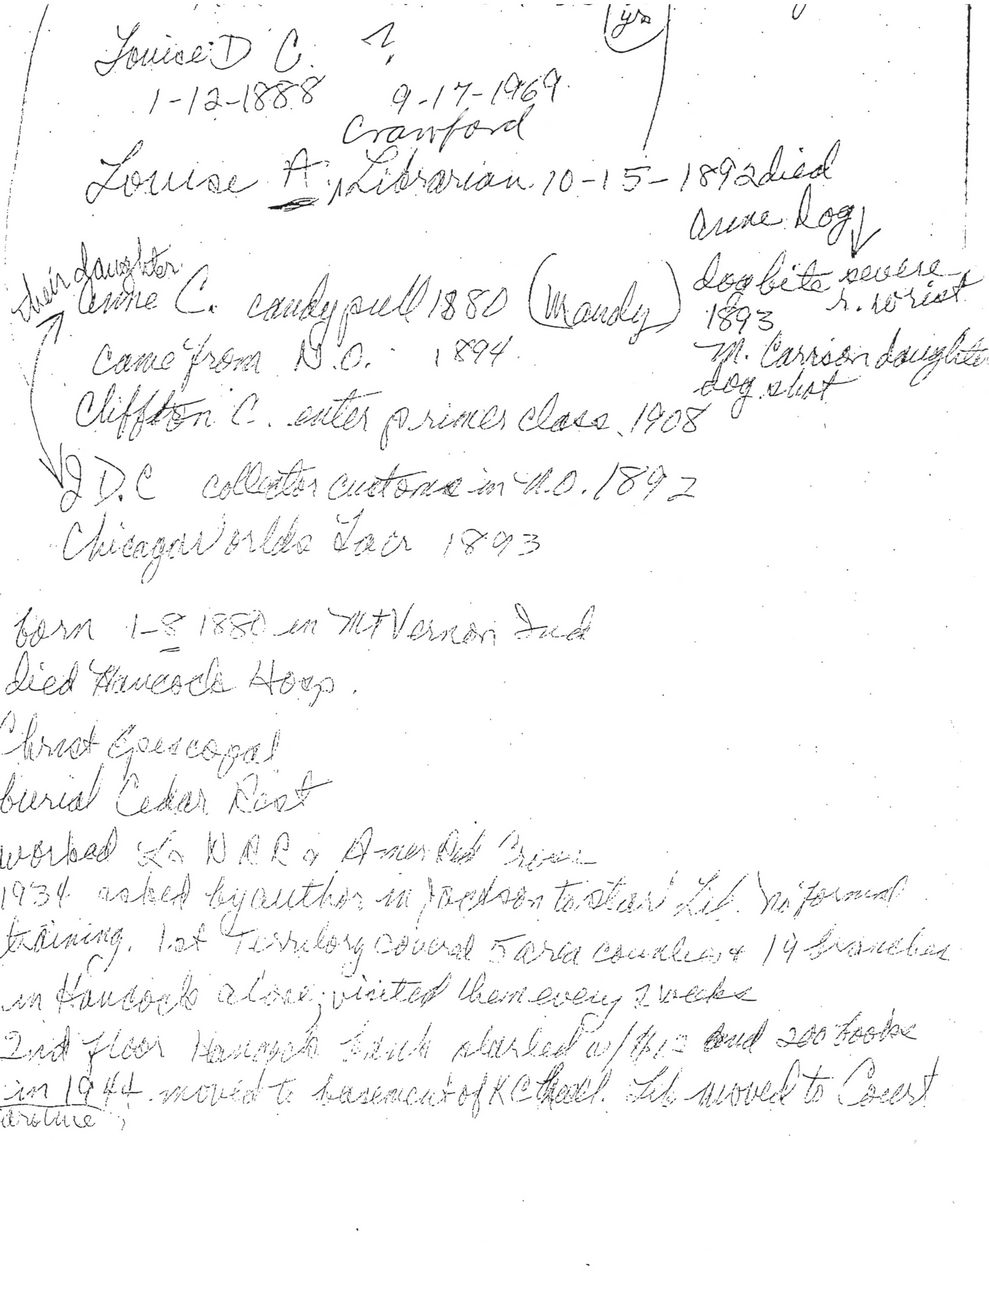 yrs
Louise D C. ?
1-12-1888 9-17-1969
Crawford
Louise A. Librarian 10-15-1892 died
Anne Dog
their daughter
Anne C. candy pull 1880 (Maudy) dogbite severe
1893 r. wrist
came from N.O. 1894 M. Carrison daughter
dog shot
Cliffton C. enter primer class. 1908
J D. C collector customs in N.O. 1892
Chicago Worlds Fair 1893
born 1-8 1880 in Mt Vernon Ind
died Hancock Hosp.
Christ Episcopal
burial Cedar Rest
worked L & N R R & Amer Red Cross
1934 asked by author in Jackson to start Lib. no formal
training. 1st Territory covered 5 area counties & 19 branches
in Hancock alone; visited them every 2 weeks
2nd floor Hancock bank started w/ $12 and 200 books
in 1944 moved to basement of K C Hall. Lib moved to Court